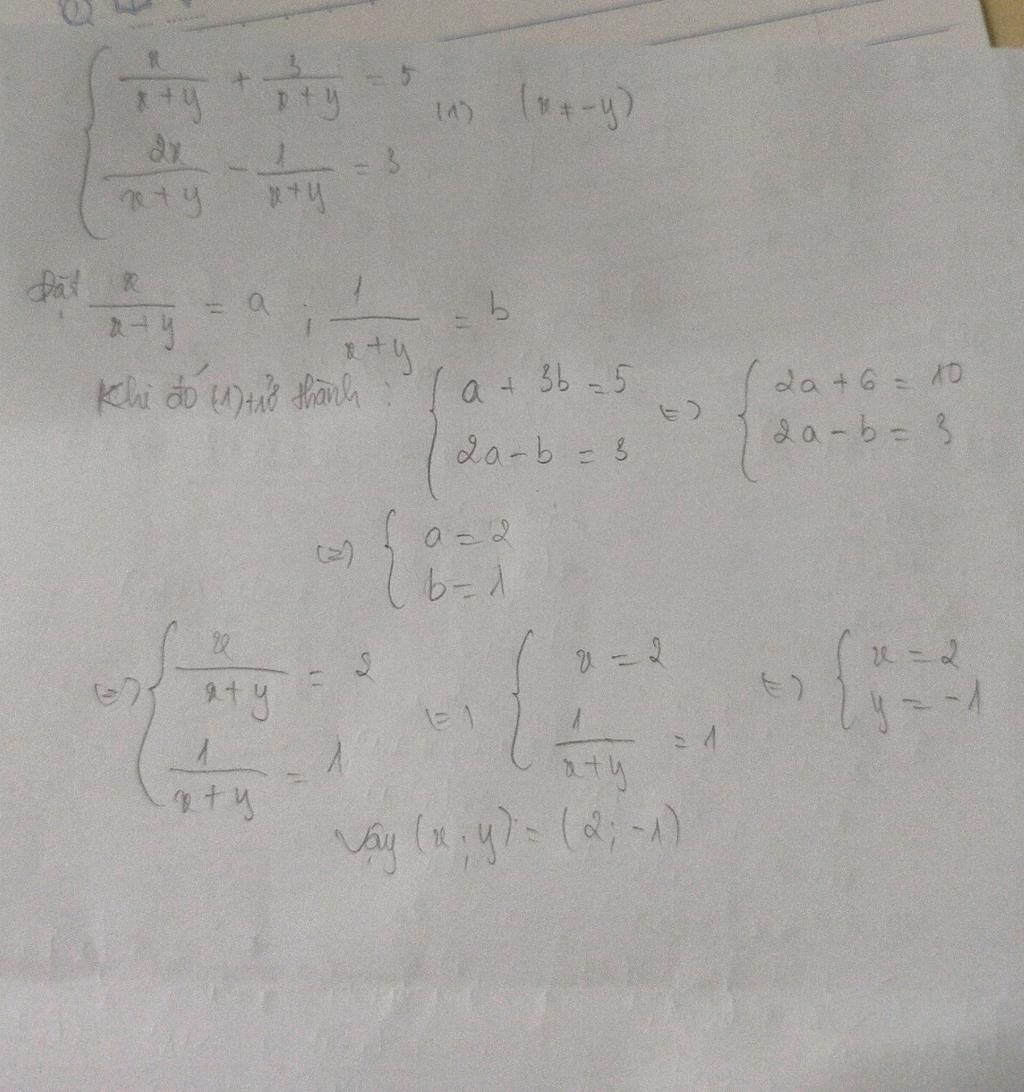 { x/(x+y) + 3/(x+y) = 5
{ 2x/(x+y) - 1/(x+y) = 3 (1) (x ≠ -y)
Đặt x/(x+y) = a ; 1/(x+y) = b
Khi đó (1) trở thành : { a + 3b = 5 ; 2a - b = 3 <=> { 2a + 6 = 10 ; 2a - b = 3
<=> { a = 2 ; b = 1
<=> { x/(x+y) = 2 ; 1/(x+y) = 1 <=> { x = 2 ; 1/(x+y) = 1 <=> { x = 2 ; y = -1
Vậy (x ; y) = (2 ; -1)